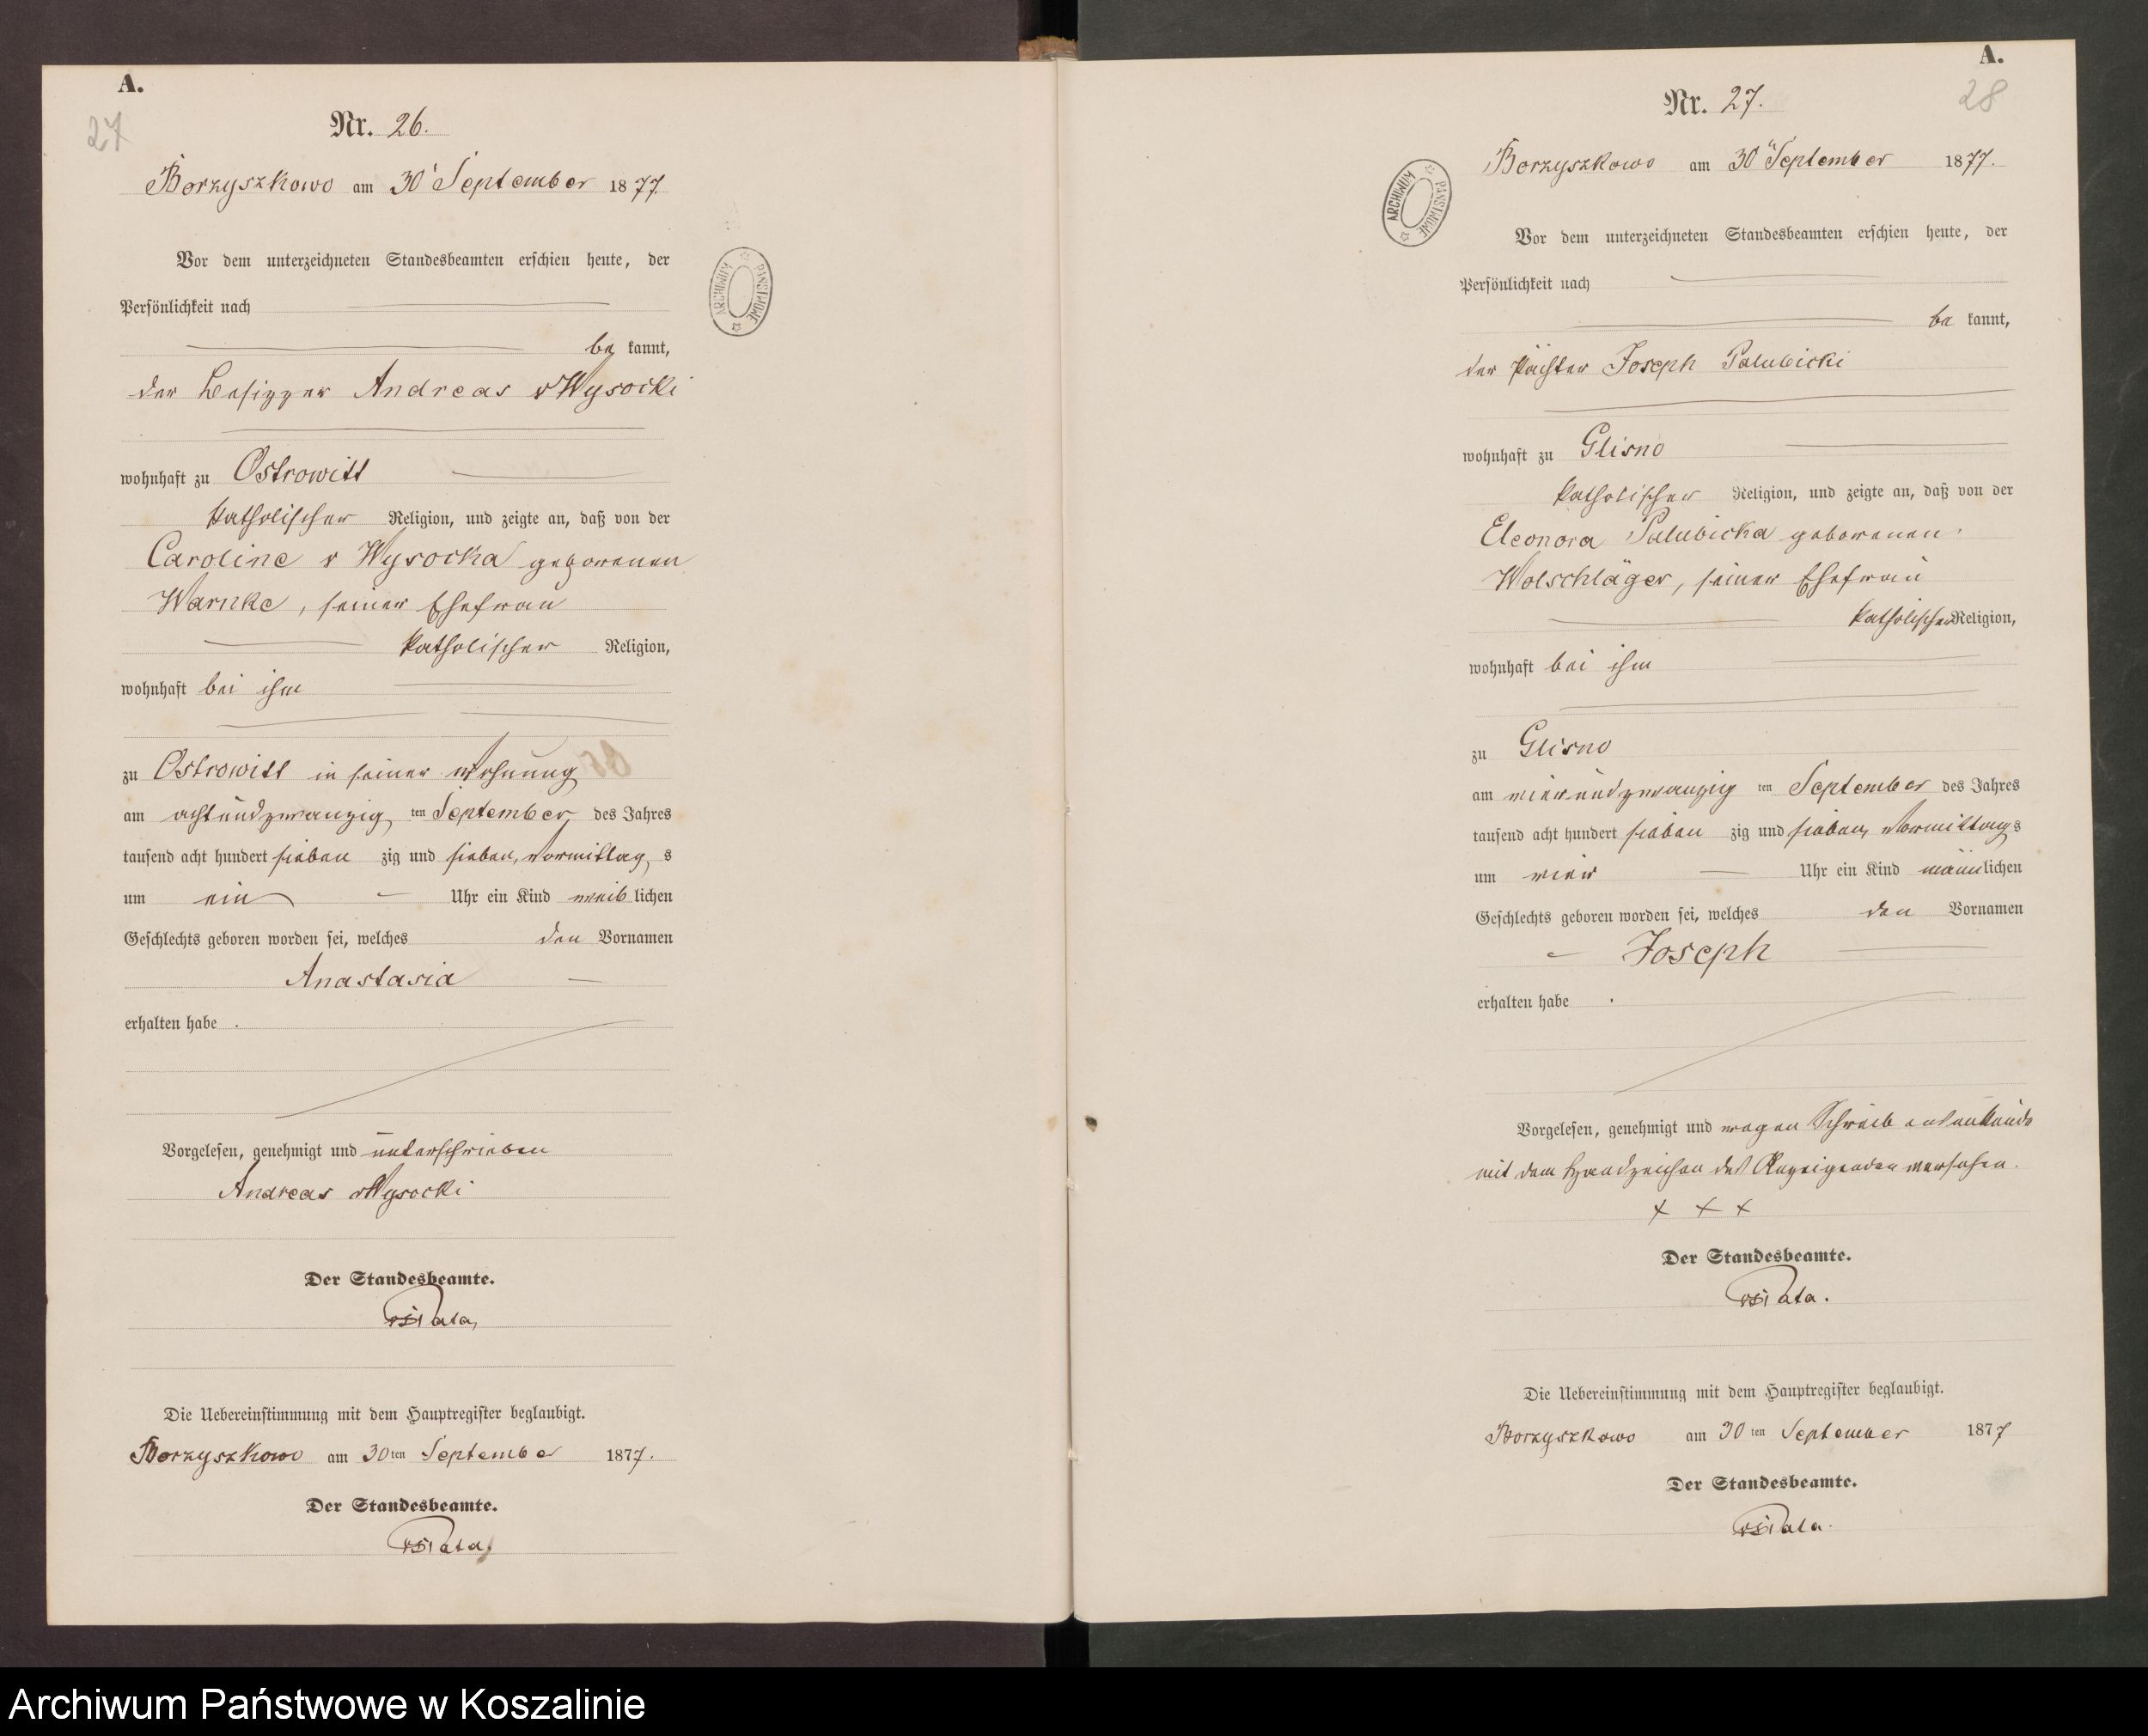 A.
27
Nr. 26.
Borzyszkowo am 30t September 1877.
Vor dem unterzeichneten Standesbeamten erschien heute, der
Persönlichkeit nach
be kannt,
der Besitzer Andreas v Wysocki
wohnhaft zu Ostrowitt
katholischer Religion, und zeigte an, daß von der
Caroline v Wysocka geborenen
Warnke, seiner Ehefrau
katholischer Religion,
wohnhaft bei ihm
zu Ostrowitt in seiner Wohnung
am achtundzwanzig ten September des Jahres
tausend acht hundert sieben zig und sieben, Vormittag s
um ein Uhr ein Kind weib lichen
Geschlechts geboren worden sei, welches den Vornamen
Anastasia
erhalten habe .
Vorgelesen, genehmigt und unterschrieben
Andreas v Wysocki
Der Standesbeamte.
Die Uebereinstimmung mit dem Hauptregister beglaubigt.
Borzyszkowo am 30ten September 1877.
Der Standesbeamte.
ARCHIWUM PAŃSTWOWE
A.
28
Nr. 27.
Borzyszkowo am 30t September 1877.
Vor dem unterzeichneten Standesbeamten erschien heute, der
Persönlichkeit nach
be kannt,
der Pächter Joseph Palubicki
wohnhaft zu Glisno
katholischer Religion, und zeigte an, daß von der
Eleonora Palubicka geborenen
Wolschläger, seiner Ehefrau
katholischer Religion,
wohnhaft bei ihm
zu Glisno
am vierundzwanzig ten September des Jahres
tausend acht hundert sieben zig und sieben, Vormittag s
um vier Uhr ein Kind männ lichen
Geschlechts geboren worden sei, welches den Vornamen
Joseph
erhalten habe .
Vorgelesen, genehmigt und wegen Schreib
mit dem Handzeichen des Anzeigenden versehen.
+ + +
Der Standesbeamte.
Die Uebereinstimmung mit dem Hauptregister beglaubigt.
Borzyszkowo am 30 ten September 1877
Der Standesbeamte.
ARCHIWUM PAŃSTWOWE
Archiwum Państwowe w Koszalinie